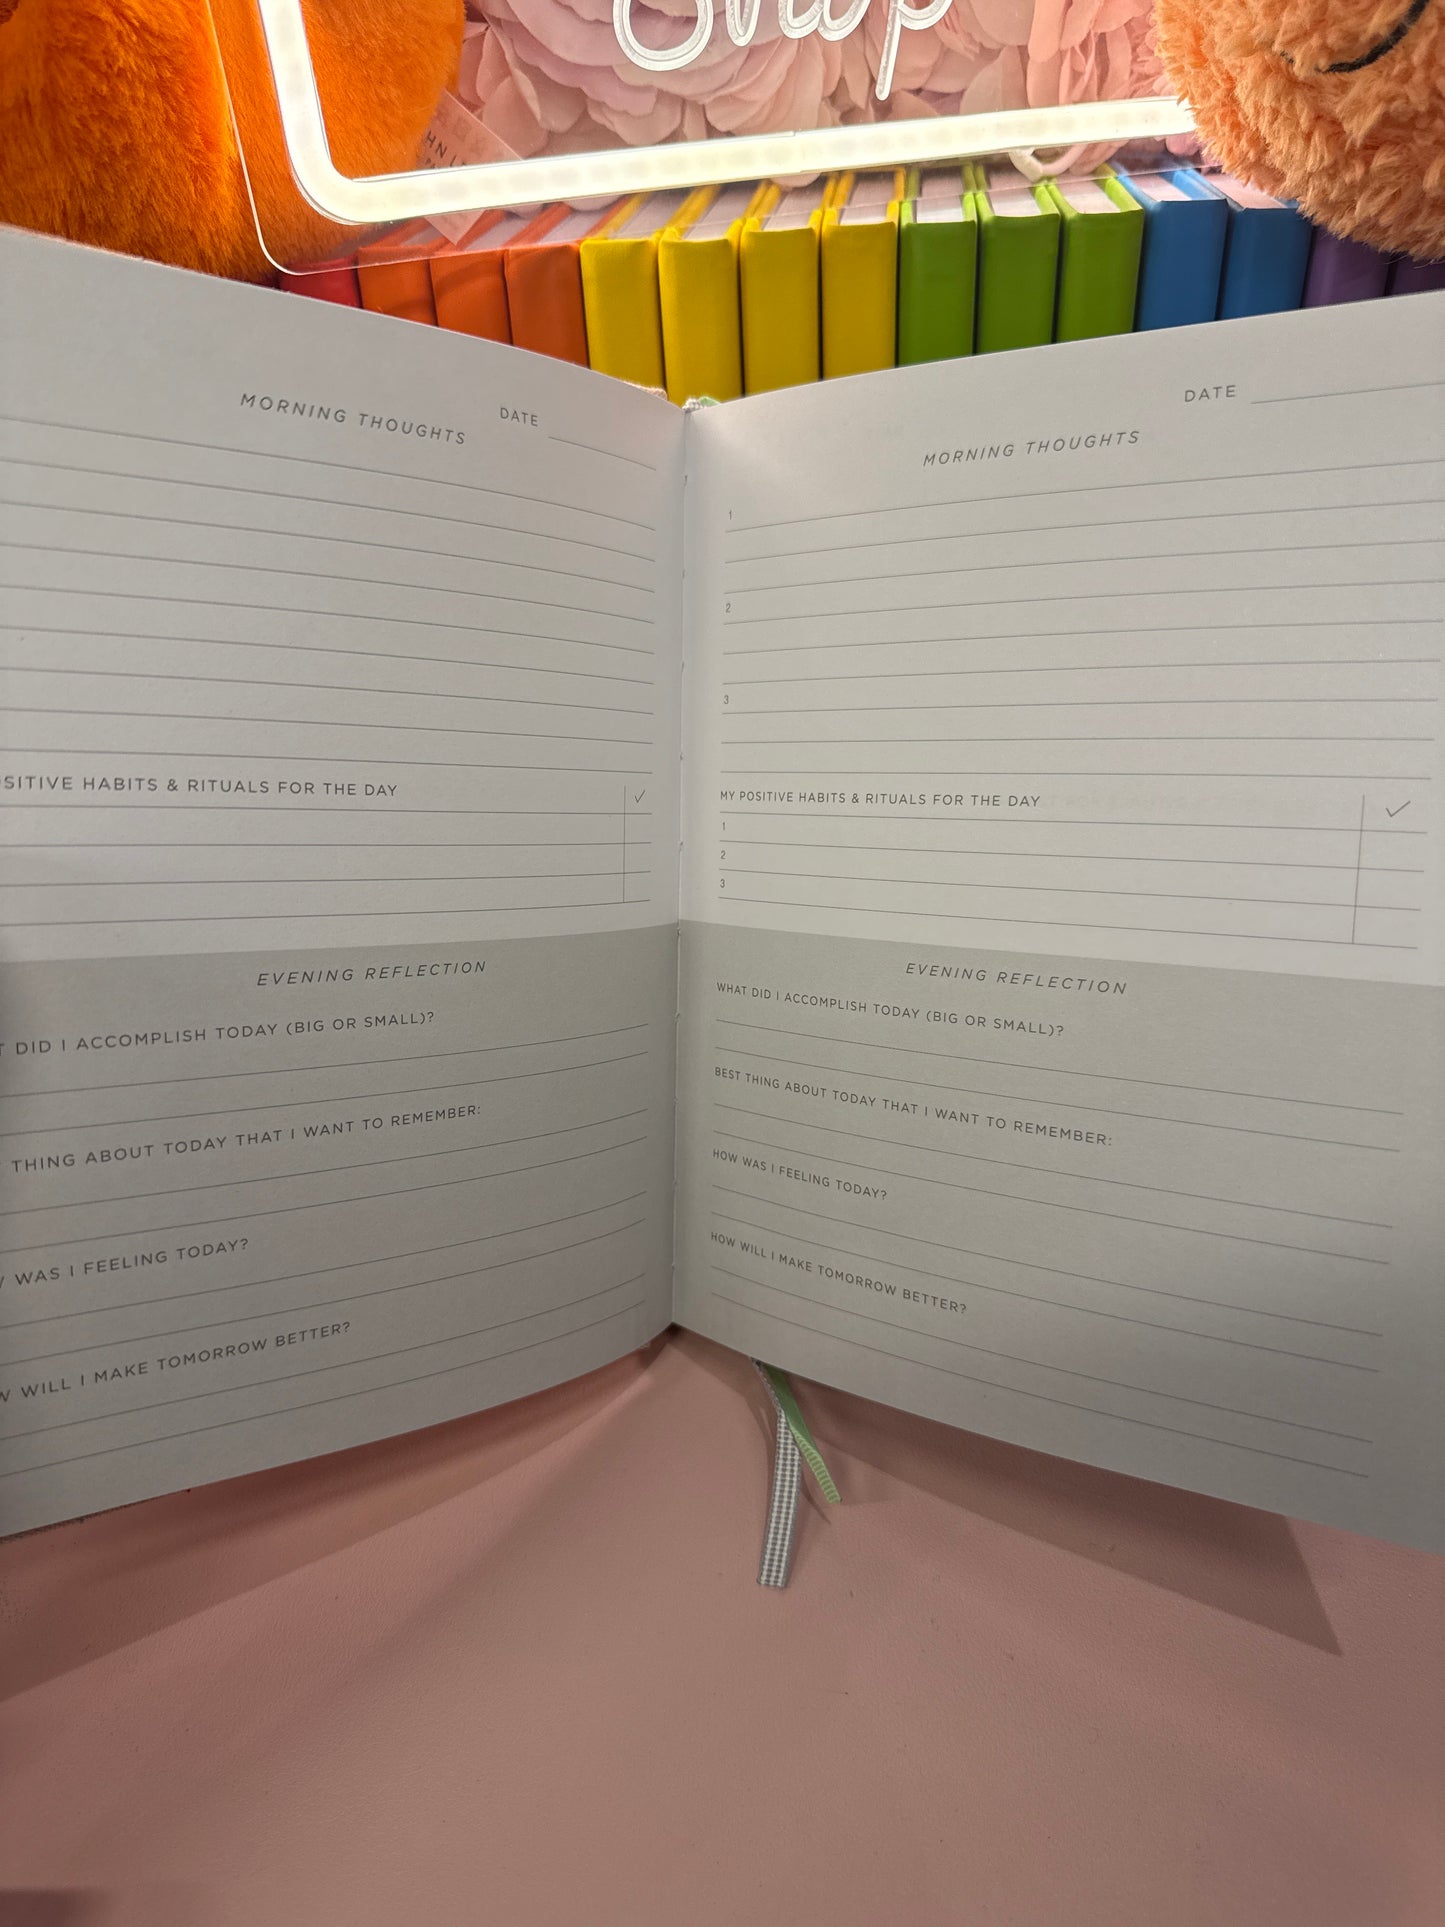 Shop
MORNING THOUGHTS
DATE
SITIVE HABITS & RITUALS FOR THE DAY
✓
EVENING REFLECTION
T DID I ACCOMPLISH TODAY (BIG OR SMALL)?
THING ABOUT TODAY THAT I WANT TO REMEMBER:
WAS I FEELING TODAY?
W WILL I MAKE TOMORROW BETTER?
DATE
MORNING THOUGHTS
1
2
3
MY POSITIVE HABITS & RITUALS FOR THE DAY
✓
1
2
3
EVENING REFLECTION
WHAT DID I ACCOMPLISH TODAY (BIG OR SMALL)?
BEST THING ABOUT TODAY THAT I WANT TO REMEMBER:
HOW WAS I FEELING TODAY?
HOW WILL I MAKE TOMORROW BETTER?